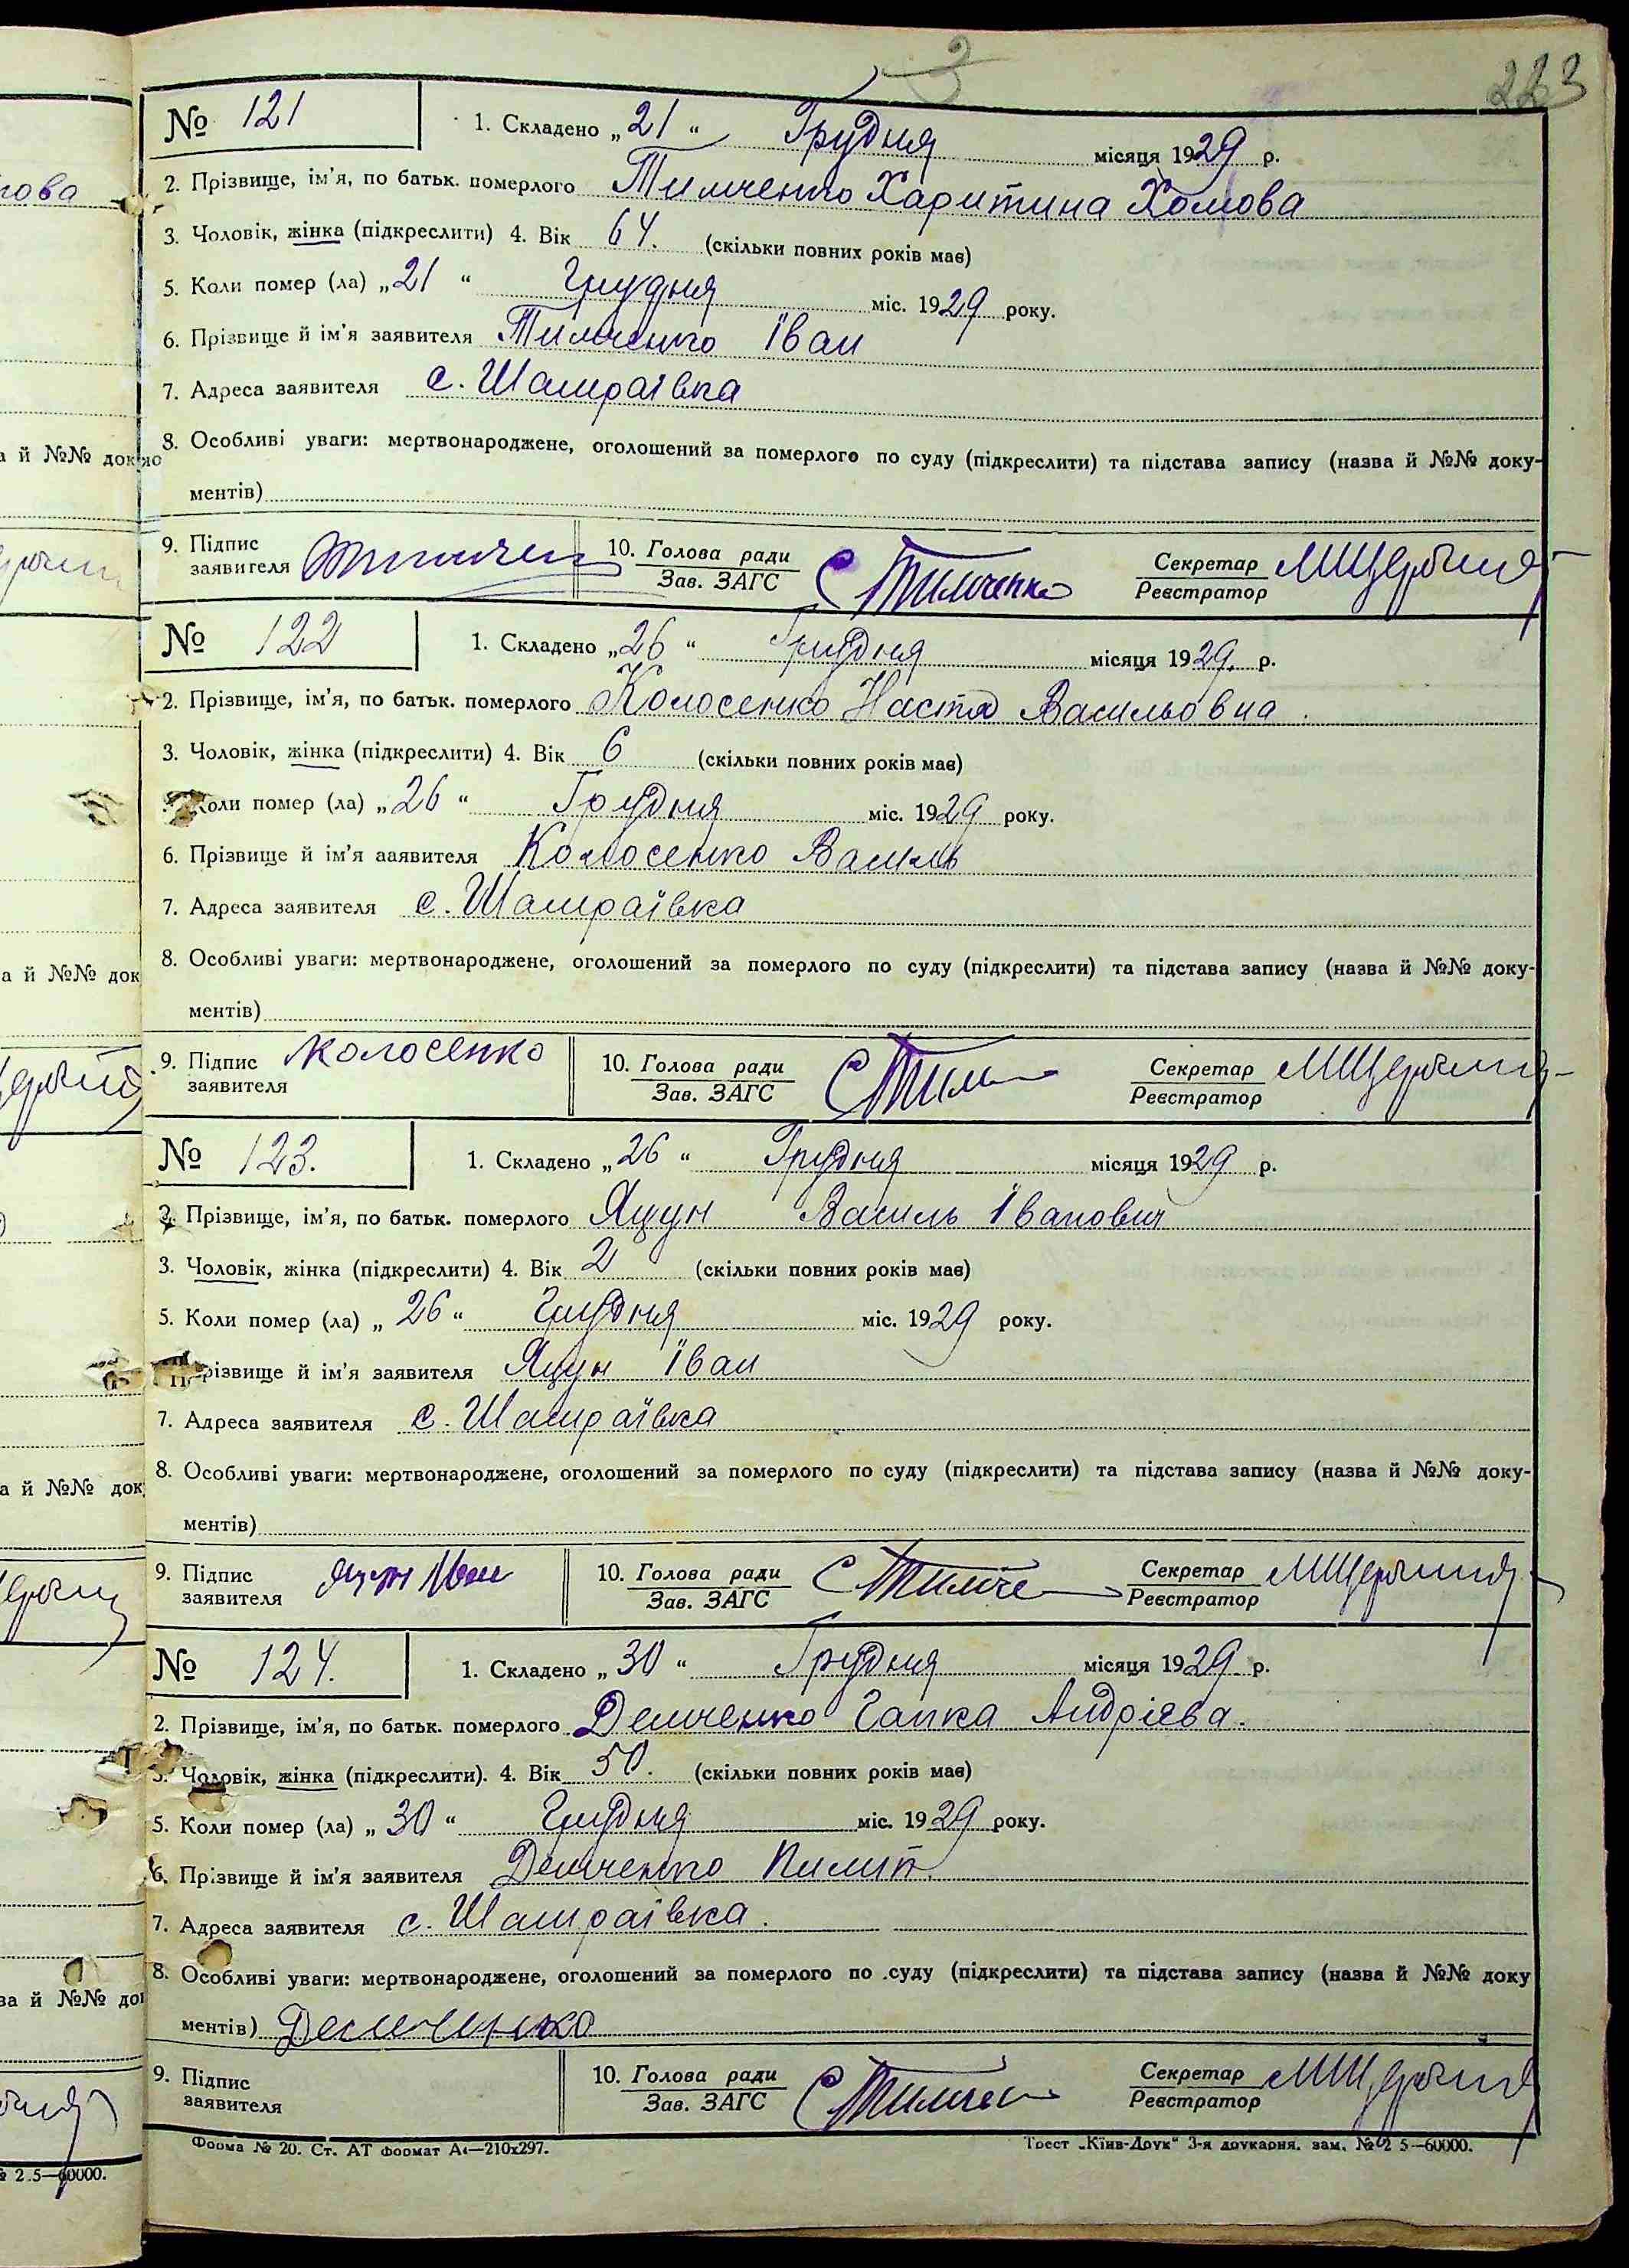 3
223
№ 121 1. Складено „21“ Грудня місяця 1929 р.
2. Прізвище, ім'я, по батьк. померлого Тимченко Харитина Хомова
3. Чоловік, жінка (підкреслити) 4. Вік 64. (скільки повних років має)
5. Коли помер (ла) „21“ Грудня міс. 1929 року.
6. Прізвище й ім'я заявителя Тимченко Іван
7. Адреса заявителя с. Шамраївка
8. Особливі уваги: мертвонароджене, оголошений за померлого по суду (підкреслити) та підстава запису (назва й №№ доку-
ментів)
9. Підпис 10. Голова ради С Тимченко Секретар МЩербина
заявителя Зав. ЗАГС Реєстратор
№ 122 1. Складено „26“ Грудня місяця 1929. р.
2. Прізвище, ім'я, по батьк. померлого Колосенко Настя Васильовна.
3. Чоловік, жінка (підкреслити) 4. Вік 6 (скільки повних років має)
Коли помер (ла) „26“ Грудня міс. 1929 року.
6. Прізвище й ім'я ааявителя Колосенко Василь
7. Адреса заявителя с. Шамраївка
8. Особливі уваги: мертвонароджене, оголошений за померлого по суду (підкреслити) та підстава запису (назва й №№ доку-
ментів)
9. Підпис Колосенко 10. Голова ради С Тим Секретар МЩербина
заявителя Зав. ЗАГС Реєстратор
№ 123. 1. Складено „26“ Грудня місяця 1929 р.
2. Прізвище, ім'я, по батьк. померлого Яцун Василь Іванович
3. Чоловік, жінка (підкреслити) 4. Вік 2 (скільки повних років має)
5. Коли помер (ла) „26“ Грудня міс. 1929 року.
Прізвище й ім'я заявителя Яцун Іван
7. Адреса заявителя с. Шамраївка
8. Особливі уваги: мертвонароджене, оголошений за померлого по суду (підкреслити) та підстава запису (назва й №№ доку-
ментів)
9. Підпис Яцун Іван 10. Голова ради С Тимче Секретар МЩербина
заявителя Зав. ЗАГС Реєстратор
№ 124. 1. Складено „30“ Грудня місяця 1929. р.
2. Прізвище, ім'я, по батьк. померлого Демченко Гапка Андрієва.
3. Чоловік, жінка (підкреслити). 4. Вік 50. (скільки повних років має)
5. Коли помер (ла) „30“ Грудня міс. 1929 року.
6. Прізвище й ім'я заявителя Демченко Пилип.
7. Адреса заявителя с. Шамраївка.
8. Особливі уваги: мертвонароджене, оголошений за померлого по суду (підкреслити) та підстава запису (назва й №№ доку
ментів) Демченко
9. Підпис 10. Голова ради С Тимчен Секретар МЩербина
заявителя Зав. ЗАГС Реєстратор
Форма № 20. Ст. АТ формат А4—210х297. Трест „Київ-Друк“ 3-я друкарня. зам. № 2 5—60000.